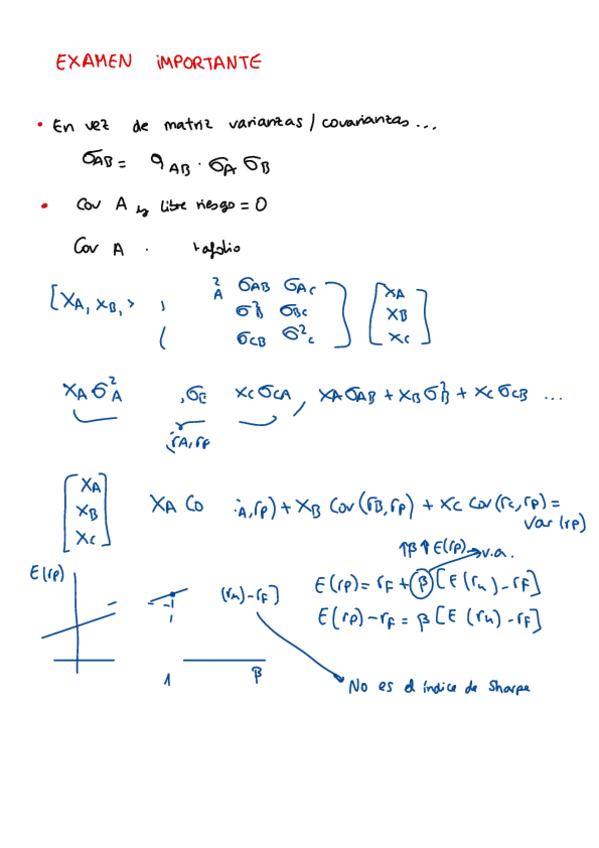 EXAMEN IMPORTANTE
• En vez de matriz varianzas / covarianzas ...
σAB = ρAB · σA σB
• Cov A y libre riesgo = 0
Cov A
[XA, XB,
²A σAB σAC ] [XA
σ²B σBC XB
σCB σ²C ] XC]
XA σ²A , σC XC σCA , XA σAB + XB σ²B + XC σCB ...
rA, rP
[XA
XB
XC]
XA Co A, rp) + XB Cov (rB, rp) + XC Cov (rC, rp) =
Var (rp)
↑β ↑E(rp) → v.a.
E(rp)
(rM) - rF]
E(rp) = rF + β [E (rM) - rF]
E(rp) - rF = β [E (rM) - rF]
1 β
No es el índice de Sharpe